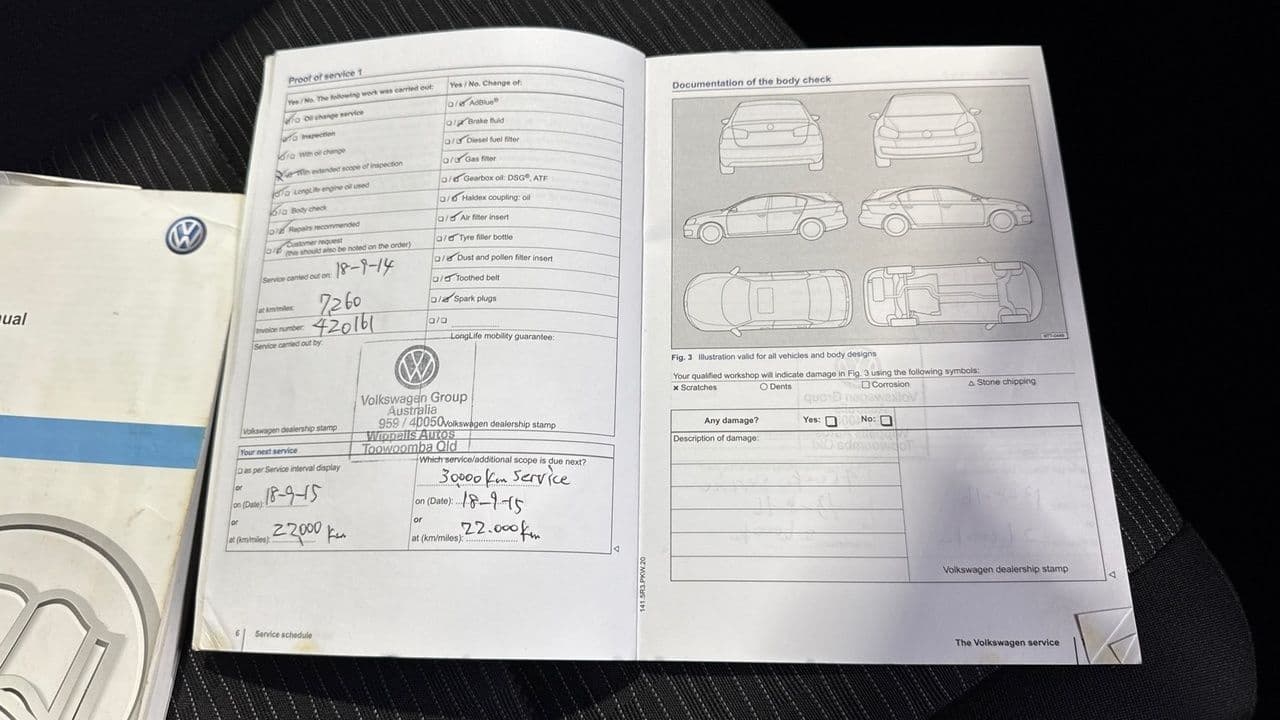 ual
Proof of service 1
Yes / No. The following work was carried out:
Oil change service
Inspection
With oil change
With extended scope of inspection
LongLife engine oil used
Body check
Repairs recommended
Customer request
(this should also be noted on the order)
Service carried out on: 18-9-14
at km/miles: 7,260
Invoice number: 420161
Service carried out by:
Yes / No. Change of:
AdBlue®
Brake fluid
Diesel fuel filter
Gas filter
Gearbox oil: DSG®, ATF
Haldex coupling: oil
Air filter insert
Tyre filler bottle
Dust and pollen filter insert
Toothed belt
Spark plugs
LongLife mobility guarantee:
Volkswagen Group
Australia
959 / 40050
Wippells Autos
Toowoomba Qld
Volkswagen dealership stamp
Volkswagen dealership stamp
Your next service
as per Service interval display
or
on (Date): 18-9-15
or
at (km/miles): 22000 km
Which service/additional scope is due next?
30,000 km Service
on (Date): 18-9-15
or
at (km/miles): 22.000 km
6 Service schedule
141.5R3.PKW.20
Documentation of the body check
Fig. 3 Illustration valid for all vehicles and body designs
Your qualified workshop will indicate damage in Fig. 3 using the following symbols:
Scratches Dents Corrosion Stone chipping
Any damage? Yes: No:
Description of damage:
Volkswagen dealership stamp
The Volkswagen service